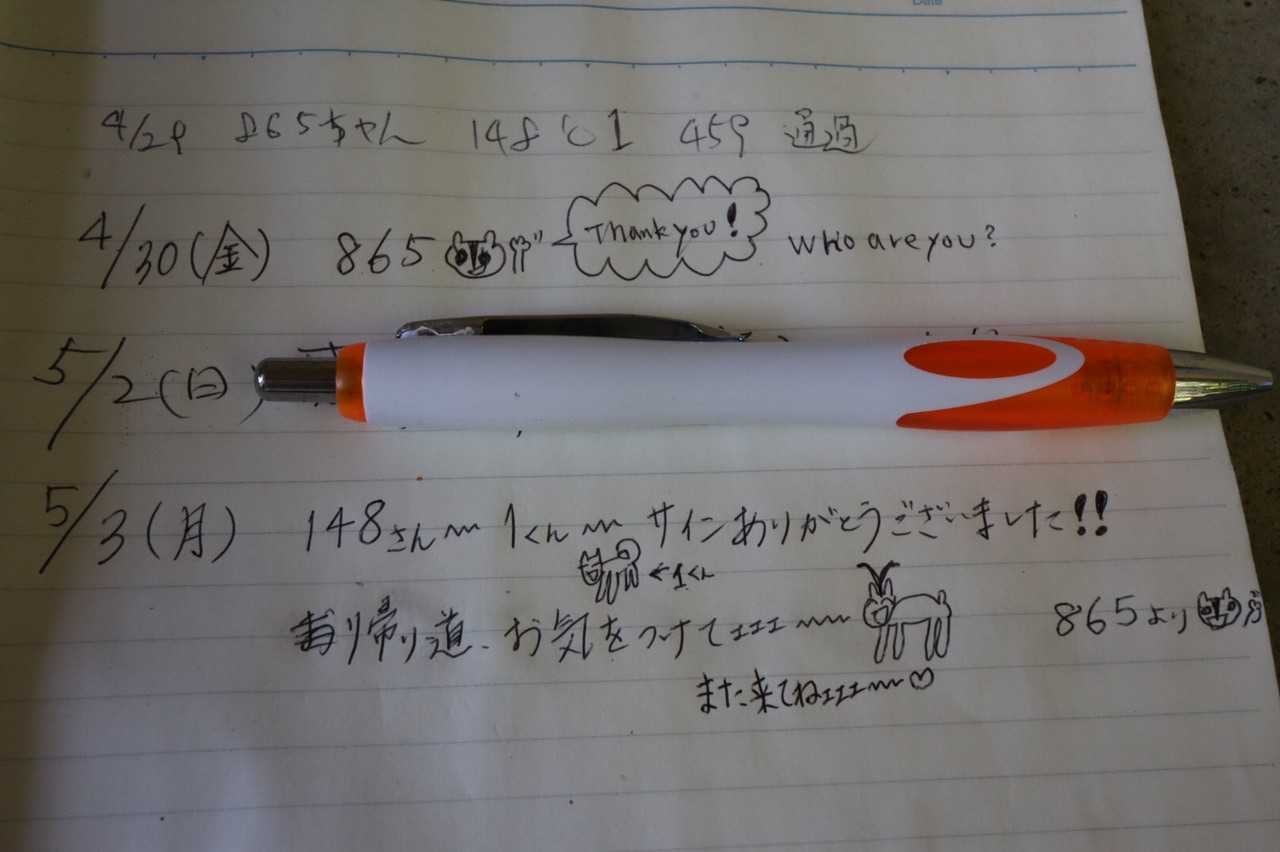 Date
4/29 865ちゃん 148と1 459 通過
4/30(金) 865 Thank you! who are you?
5/2(日)
5/3(月) 148さん〜 1くん〜 サインありがとうございました!!
←1くん
帰り道、お気をつけてエエエ〜〜 865より
また来てねエエエ〜〜♡